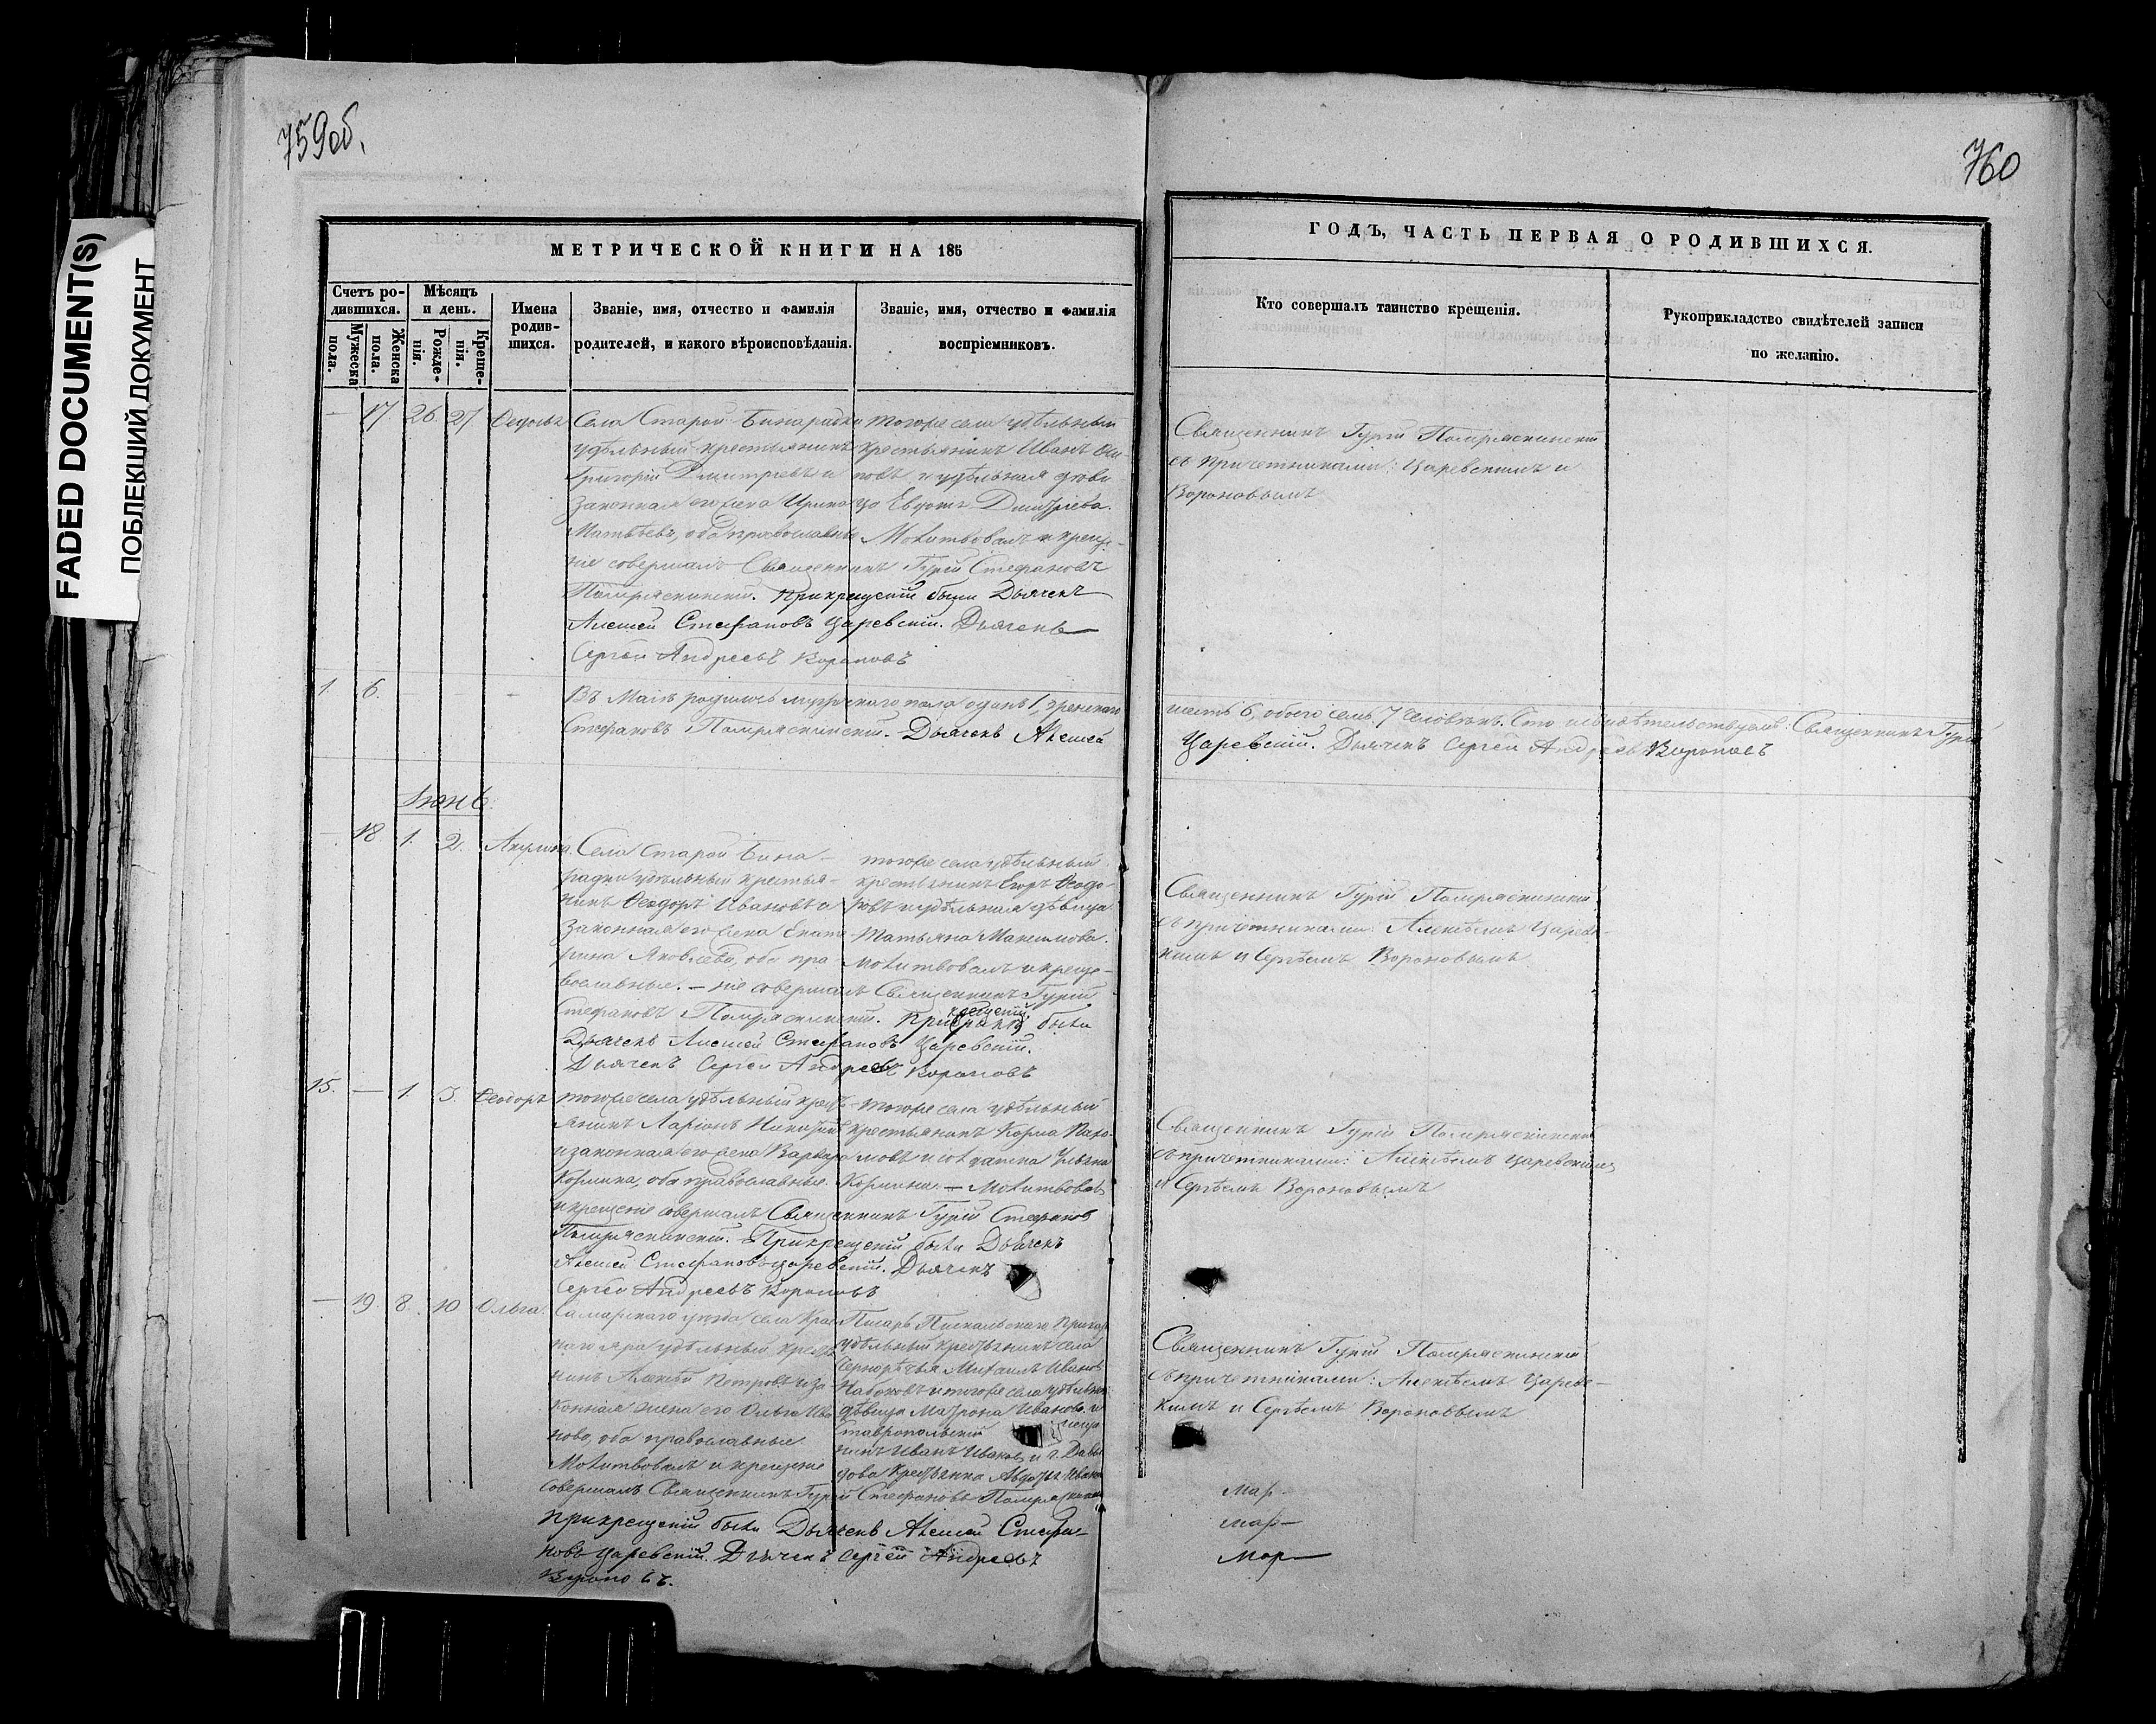 759об.
760
FADED DOCUMENT(S)
ПОБЛЕКШИЙ ДОКУМЕНТ
МЕТРИЧЕСКОЙ КНИГИ НА 185
ГОДЪ, ЧАСТЬ ПЕРВАЯ О РОДИВШИХСЯ.
Счетъ ро-
дившихся.
Мужеска
пола.
Женска
пола.
Мѣсяцъ
и день.
Рожде-
нія.
Креще-
нія.
Имена
родив-
шихся.
Званіе, имя, отчество и фамилія
родителей, и какого вѣроисповѣданія.
Званіе, имя, отчество и фамилія
воспріемниковъ.
Кто совершалъ таинство крещенія.
Рукоприкладство свидѣтелей записи
по желанію.
— 17. 26. 27
Села Старой Бинарадки
удѣльный крестьянинъ
Григорій Дмитріевъ и
законная его жена Ирина
Матвѣева, оба православные
тогоже села удѣльный
крестьянинъ Иванъ
новъ и удѣльная дѣви
ца Дмитріева.
Молитвовалъ и креще-
ніе совершалъ Священникъ Гурій Стефановъ
При крещеніи были Дьячекъ
Алексѣй Стефановъ Царевскій. Дьячекъ
Сергѣй Андреевъ Вороновъ
Священникъ Гурій
съ причетниками: Царевскимъ и
Вороновымъ
1. 6.
Въ Маіѣ родилось мужескаго пола одинъ 1, женскаго
шесть 6, обоего семь 7 человѣкъ. Священникъ Гурій
Стефановъ Дьячекъ Алексѣй
Царевскій. Дьячекъ Сергѣй Андреевъ Вороновъ
Іюнь
— 18. 1. 2. Акулина.
Села Старой Бина-
радки удѣльный крестья-
нинъ Ѳеодоръ Ивановъ и
законная его жена Екате-
рина Яковлева, оба пра-
вославные. —
тогоже села удѣльный
крестьянинъ Егоръ Ѳеодо-
ровъ и удѣльная дѣвица
Татьяна Максимова.
Молитвовалъ и креще-
ніе совершалъ Священникъ Гурій
Стефановъ При крещеніи были
Дьячекъ Алексѣй Стефановъ Царевскій.
Дьячекъ Сергѣй Андреевъ Вороновъ
Священникъ Гурій
съ причетниками: Алексѣемъ Царевс-
кимъ и Сергѣемъ Вороновымъ
15. — 1. 3. Ѳеодоръ
тогоже села удѣльный крест-
янинъ Ларіонъ
и законная его жена Варвара
Козмина, оба православные.
тогоже села удѣльный
крестьянинъ Козма
Козмина. — Молитвовалъ
и крещеніе совершалъ Священникъ Гурій Стефановъ
При крещеніи были Дьячекъ
Алексѣй Стефановъ Царевскій. Дьячекъ
Сергѣй Андреевъ Вороновъ
Священникъ Гурій
съ причетниками: Алексѣемъ Царевскимъ
и Сергѣемъ Вороновымъ
— 19. 8. 10 Ольга.
Самарскаго уѣзда села Крас-
наго яра удѣльный крестья
нинъ Алексѣй Петровъ и за
конная жена его Ольга Ива
нова, оба православные
Молитвовалъ и крещеніе
Писарь
удѣльный крестьянинъ села
Михаилъ Ивановъ
и тогоже села удѣльная
дѣвица Матрона Иванова и
Ставропольскій
нинъ Иванъ Ивановъ и
крестьянка Авдотья Иванова
совершалъ Священникъ Гурій Стефановъ
При крещеніи были Дьячекъ Алексѣй Стефа-
новъ Царевскій. Дьячекъ Сергѣй Андреевъ
Вороновъ.
Священникъ Гурій
съ причетниками: Алексѣемъ Царевс-
кимъ и Сергѣемъ Вороновымъ
Мар-
Мар-
Мар-